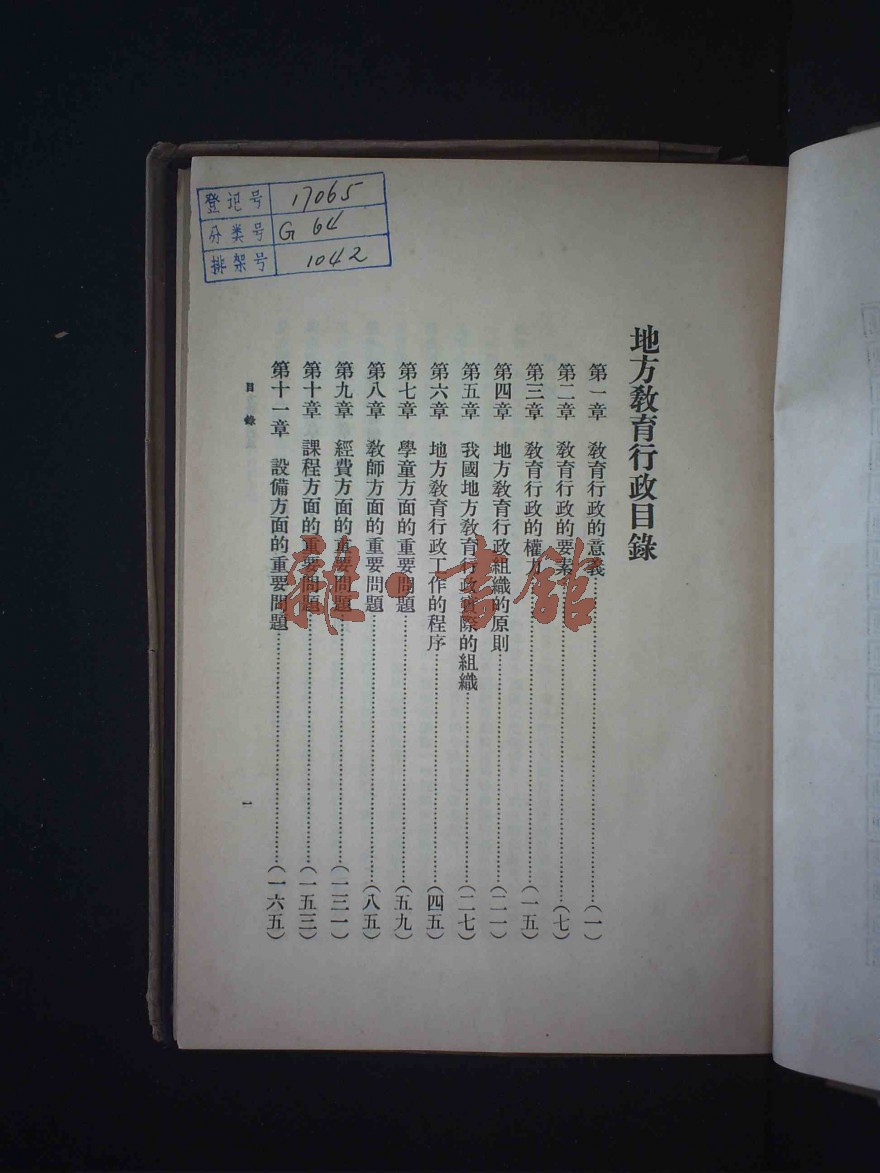 登记号 17065
分类号 G 64
排架号 1042
地方教育行政目錄
第一章 教育行政的意義……(一)
第二章 教育行政的要素……(七)
第三章 教育行政的權力……(一五)
第四章 地方教育行政組織的原則……(二一)
第五章 我國地方教育行政實際的組織……(二七)
第六章 地方教育行政工作的程序……(四五)
第七章 學童方面的重要問題……(五九)
第八章 教師方面的重要問題……(八五)
第九章 經費方面的重要問題……(一三一)
第十章 課程方面的重要問題……(一五三)
第十一章 設備方面的重要問題……(一六五)
目錄
一
雜·書館